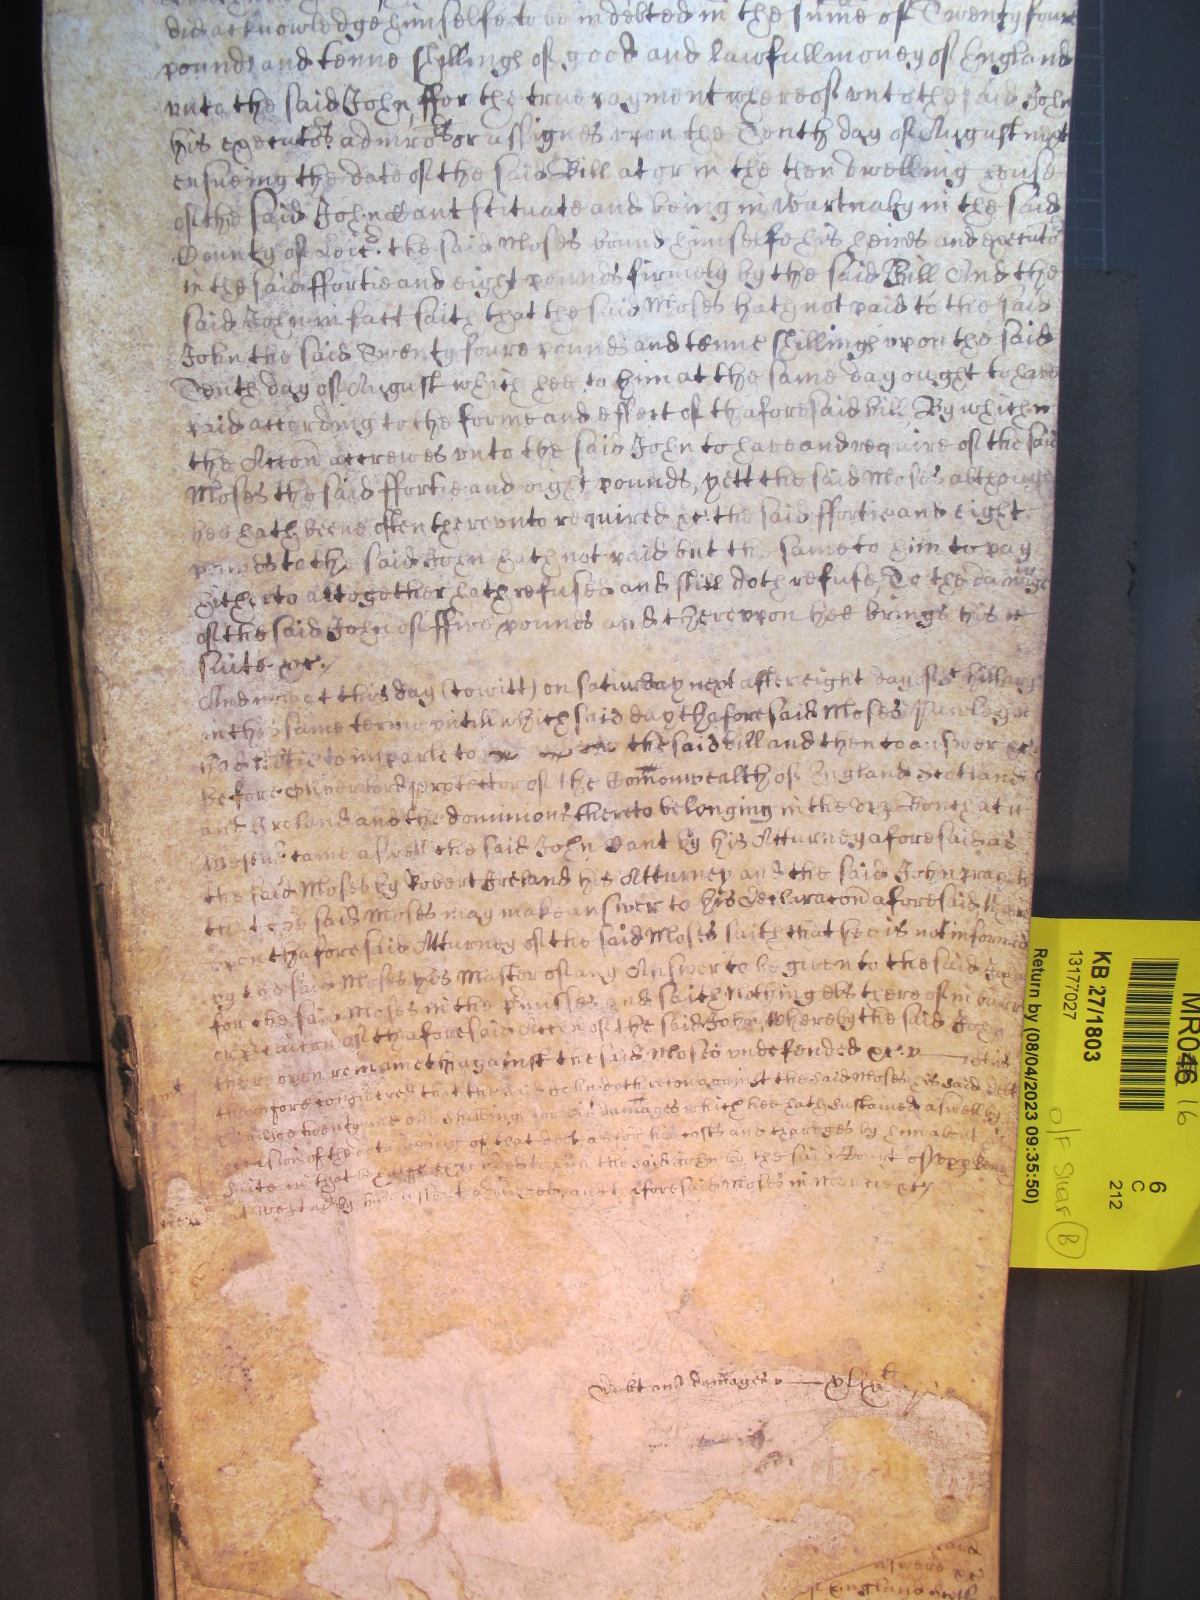 did acknowledge himselfe to be indebted in the sume of Twenty foure
pounds and tenne shillings of good and lawfull money of England
vnto the said John, ffor the true payment whereof vnto the said John
his executors admrs or assignes vpon the Tenth day of August next
ensueing the date of the said Bill at or in the then dwelling house
of the said John Cant scituate and being in Wartnaby in the said
County of Leic. the said Moses bound himselfe his heires and executors
in the said ffortie and eight pounds firmely by the said Bill And the
said John in fact saith that the said Moses hath not paid to the said
John the said Twenty foure pounds and tenne shillings vpon the said
Tenth day of August which hee to him at the same day ought to have
paid according to the forme and effect of thaforesaid bill, By which
the Accon accrewes vnto the said John to have and require of the said
Moses the said ffortie and eight pounds, yett the said Moses although
hee hath beene often therevnto required &c. the said ffortie and eight
pounds to the said John hath not paid but the same to him to pay
hitherto altogether hath refused and still doth refuse, To the damage
of the said John of ffive pounds and therevpon hee brings his
suite &c./
And now at this day (to witt) on Saturday next after eight dayes of St hillary
in this same terme vntill which said day thaforesaid Moses
had licence to imparle to the said bill and then to answer &c
before Oliver Lord protector of the Comonwealth of England Scotland
and Ireland and the dominions thereto belonging in the vpper Bench at
Westmr came as well the said John Cant by his Atturney aforesaid as
the said Moses by Robert Ireland his Atturney and the said John prayeth
that the said Moses may make answer to his declaracon aforesaid
thaforesaid Atturney of the said Moses saith that hee is not informed
by the said Moses his Master of any Answer to be given to the said John
for the said Moses in the premisses and saith nothing els thereof in barr
of thaforesaid accon of the said John, whereby the said John
therevpon remaineth against the said Moses vndefended &c.
therefore considered that the said John doth recover against the said Moses his said debt
twenty and one shilling for his damages which hee hath sustained aswell by
occasion of the detaining of that debt as for his costs and charges by him about
suite in that behalfe expended to him the said John by the said Court of vpper bench
adiudged, and thaforesaid Moses in Mercie &c/
Debt and damages xlix
said
answere &c
of England Scotl
MR046 16
KB 27/1803
13177027
Return by (08/04/2023 09:35:50)
6
C
212
O/F Shelf B